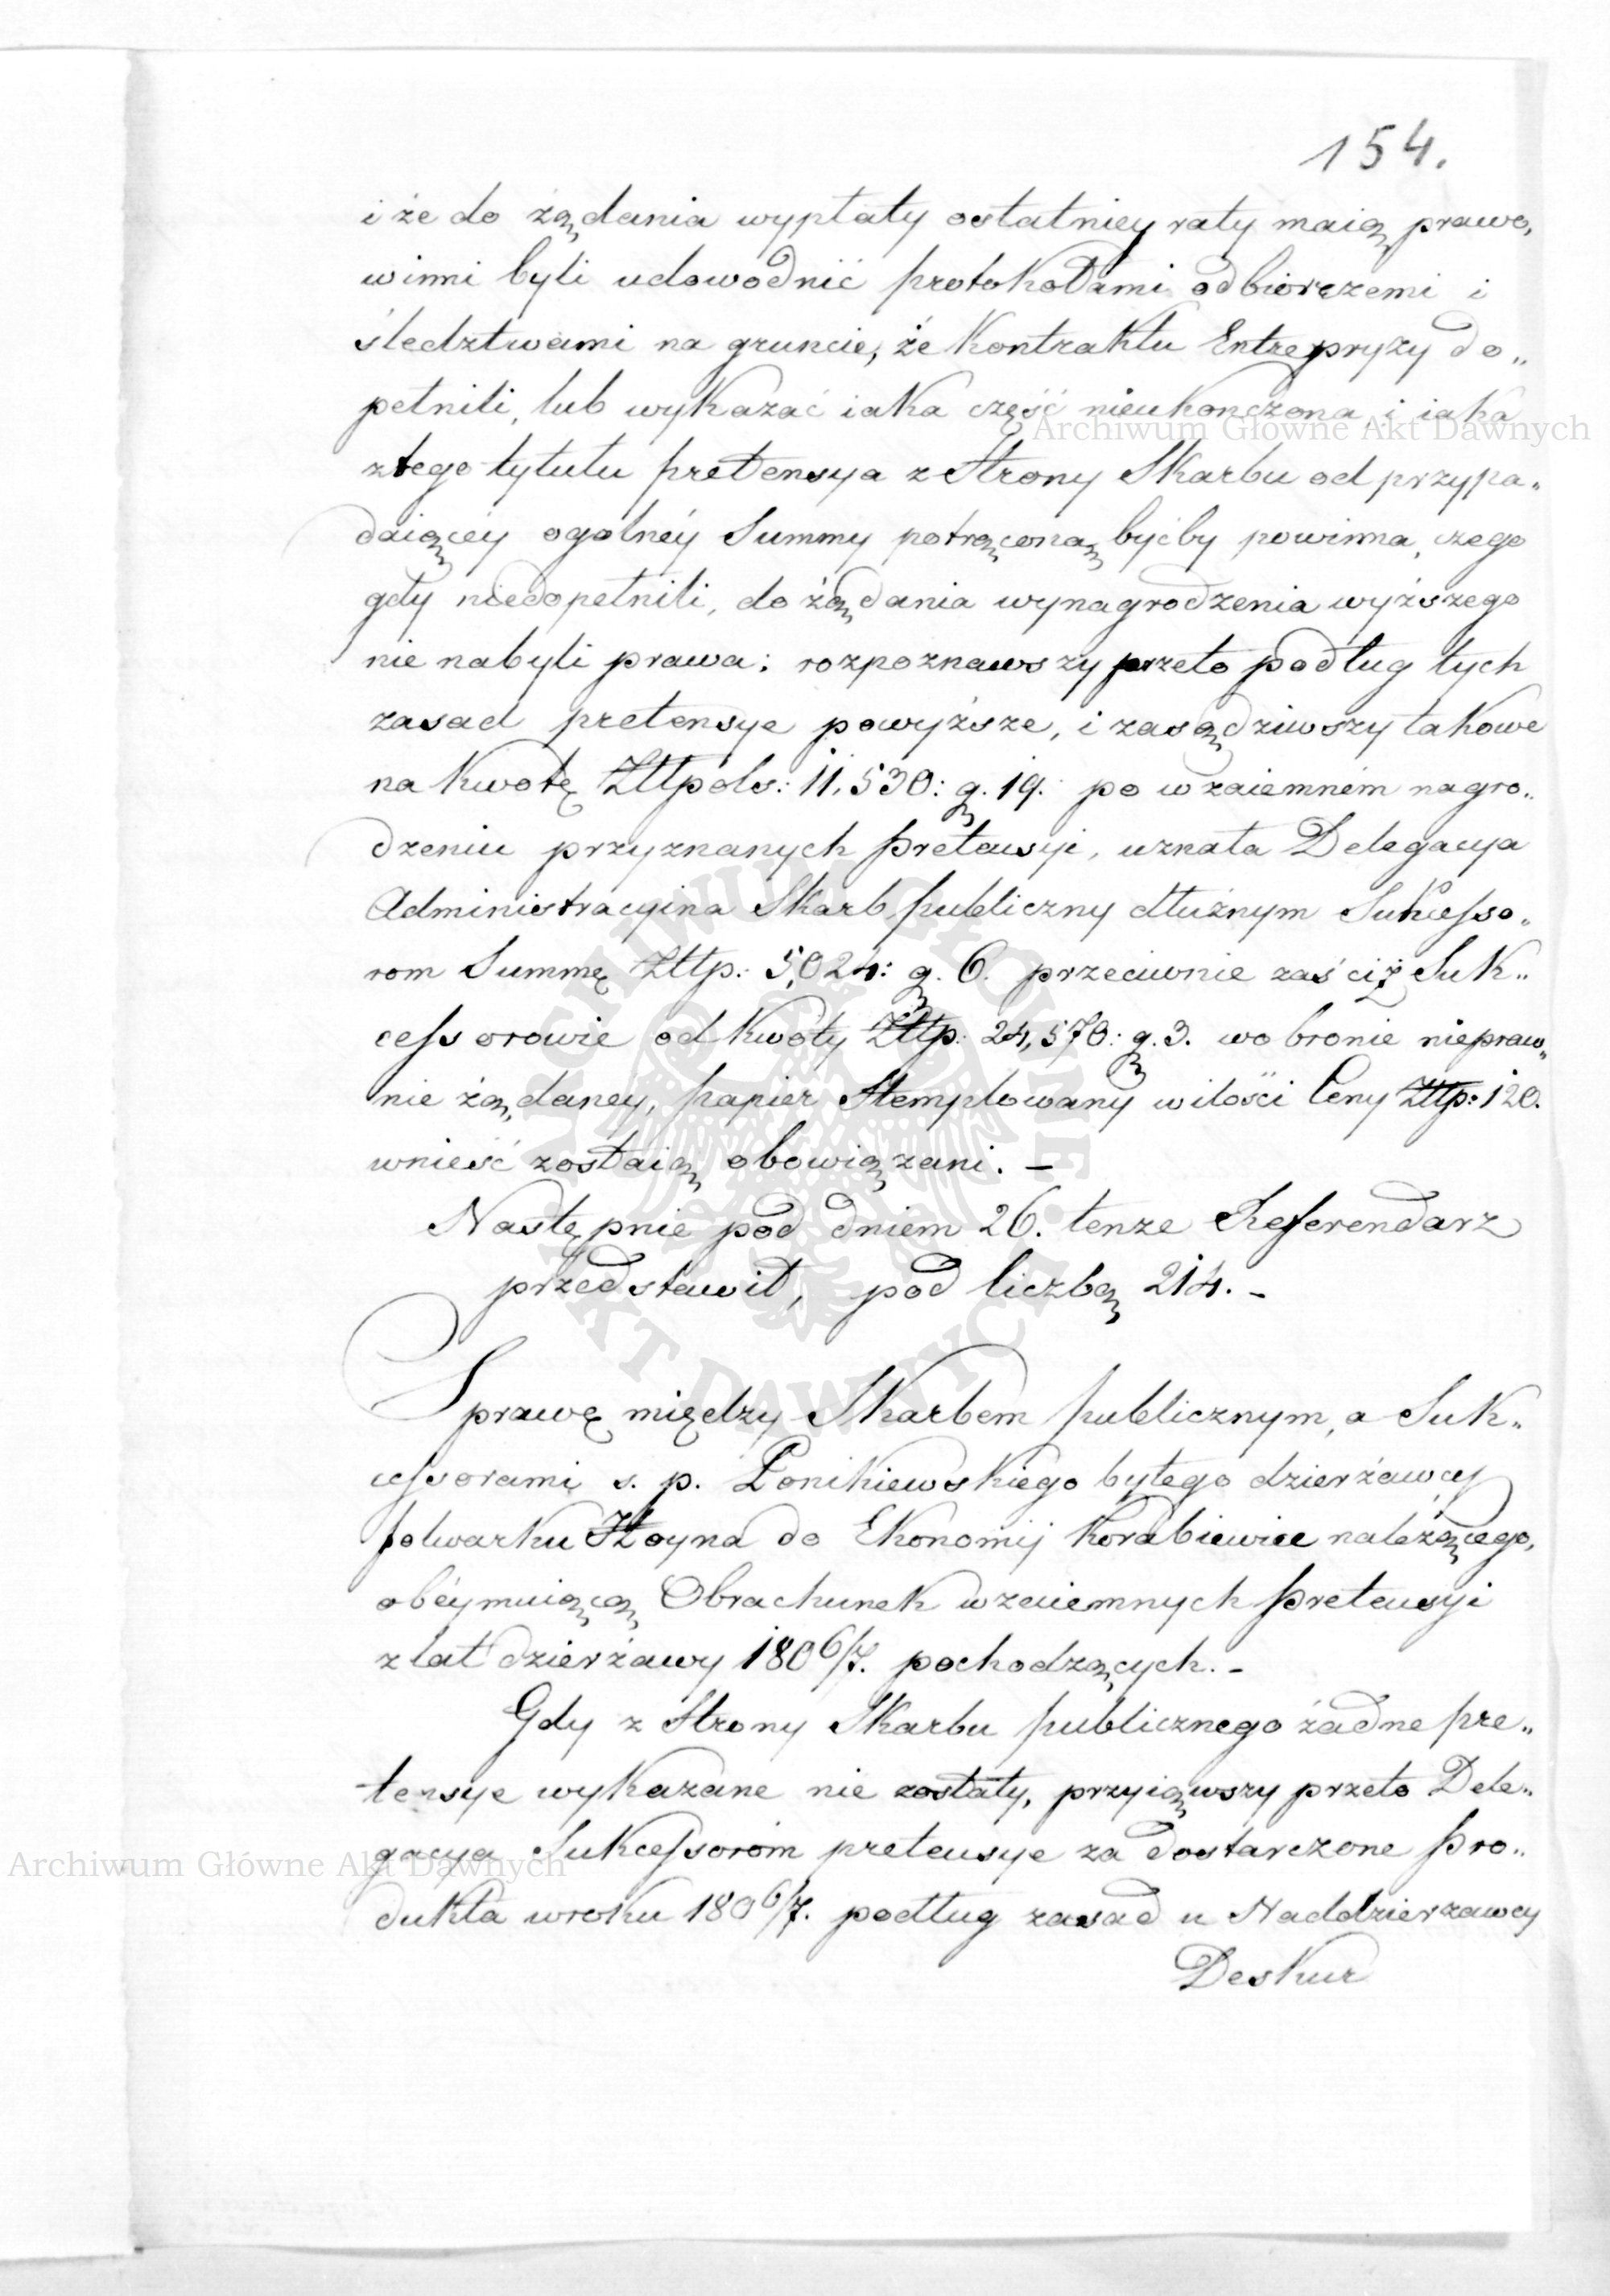 154.
i że do żądania wypłaty ostatniey raty maią prawo,
winni byli udowodnić protokołami odbiorczemi i
śledztwami na gruncie, że Kontraktu Entrepryzy do„
pełnili, lub wykazać iaka część nieukończona, i iaka
ztego tytułu pretensya z Strony Skarbu od przypa„
daiącéy ogolnéy Summy potrąconą byćby powinna, czego
gdy niedopełnili, do żądania wynagrodzenia wyższego
nie nabyli prawa; rozpoznawszy przeto podług tych
zasad pretensye powyższe, i zasądziwszy takowe
na Kwotę Złtpols: 11,530: g. 19. po wzaiemném nagro„
dzeniu przyznanych pretensyi, uznała Delegacya
Administracyina Skarb publiczny dłużnym Sukcesso„
rom Summę Złtp: 5,024: g. 6. przeciwnie zaś ciż Suk„
cessorowie od Kwoty Złtp: 24,570: g. 3. wobronie niepraw„
nie żądaney, papier Stemplowany wilości Ceny Złtp: 120.
wnieść zostaią obowiązani. —
Następnie pod dniem 26. tenze Referendarz
przedstawił, pod liczbą 214. -
Sprawę między Skarbem publicznym, a Suk„
cessorami s. p. Ponikiewskiego byłego dzierżawcy
folwarku Złoyna do Ekonomij Korabiewice należącego,
obéymuiącą Obrachunek wzaiemnych pretensyi
zlat dzierżawy 1806/7. pochodzących. -
Gdy z Strony Skarbu publicznego żadne pre„
tensye wykazane nie zostały, przyiąwszy przeto Dele„
gacya Sukcessorom pretensye za dostarczone pro„
dukta wroku 1806/7. podług zasad u Naddzierzawcy
Deskur
Archiwum Główne Akt Dawnych
Archiwum Główne Akt Dawnych
ARCHIWUM GŁÓWNE AKT DAWNYCH